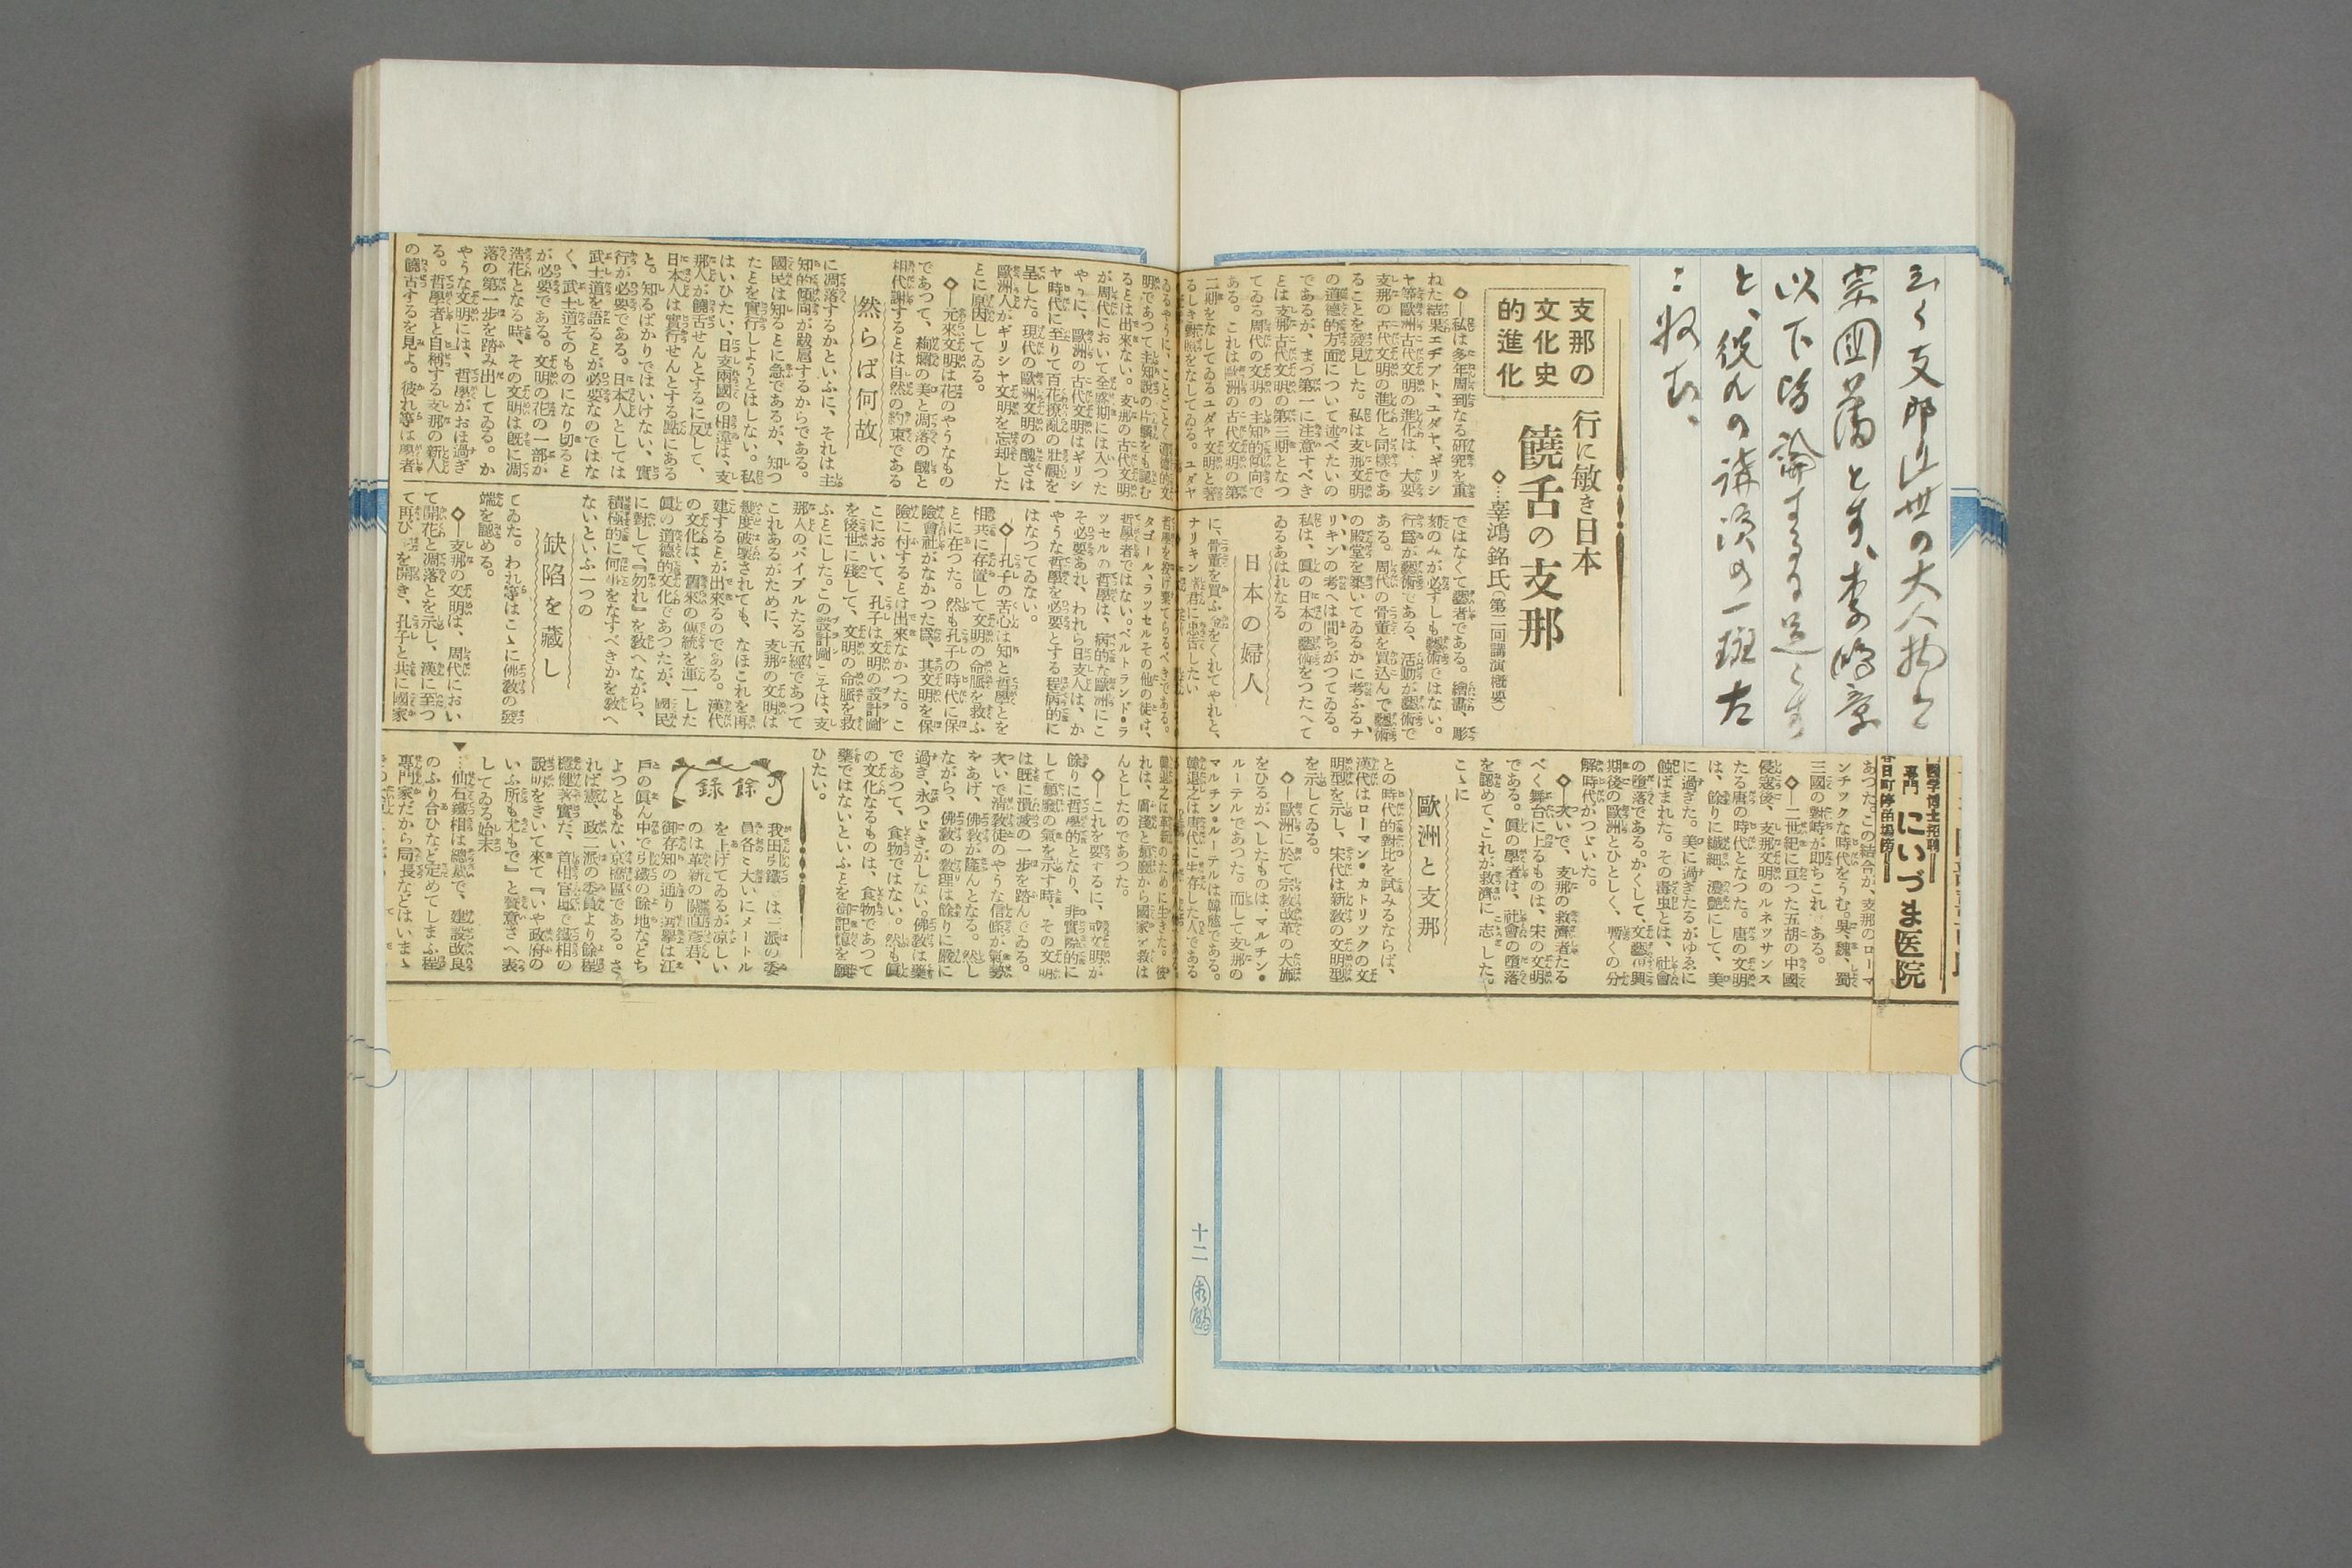 支那の
文化史
的進化
行に敏き日本
饒舌の支那
◇…辜鴻銘氏(第二回講演概要)
◇―私は多年周到なる研究を重
ねた結果エヂプト、ユダヤ、ギリシ
ヤ等歐洲古代文明の進化は、大要
支那の古代文明の進化と同樣であ
ることを發見した。私は支那文明
の道德的方面について述べたいの
であるが、まづ第一に注意すべき
とは支那古代文明の第三期となつ
てゐる周代の文明の主知的傾向で
ある。これは歐洲の古代文明の第
二期をなしてゐるユダヤ文明と著
るしき對照をなしてゐる。ユダヤ
明であつて主知說の片鱗をも認む
るとは出來ない。支那の古代文明
が周代において全盛期には入つた
やうに、歐洲の古代文明はギリシ
ヤ時代に至りて百花撩亂の壯觀を
呈した。現代の歐洲文明の醜さは
歐洲人がギリシヤ文明を忘却した
とに原因してゐる。
◇―元來文明は花のやうなもの
であつて、絢爛の美と凋落の醜と
相代謝するとは自然の約束である
然らば何故
に凋落するかといふに、それは主
知的傾向が跋扈するからである。
國民は知るとに急であるが、知つ
たとを實行しようとはしない。私
はいひたい、日支兩國の相違は、支
那人が饒舌せんとするに反して、
日本人は實行せんとする風にある
と。知るばかりではいけない、實
行が必要である。日本人としては
武士道を語るとが必要なのではな
く、武士道そのものになり切ると
が必要である。文明の花の一部が
浩花となる時、その文明は既に凋
落の第一步を踏み出してゐる。か
やうな文明には、哲學がおほ過ぎ
る。哲學者と自稱する支那の新人
の饒舌するを見よ。彼れ等は學者
ではなくて藝者である。繪畫、彫
刻のみが必ずしも藝術ではない。
行爲が藝術である、活動が藝術で
ある。周代の骨董を買込んで藝術
の殿堂を築いてゐるかに考ふるナ
リキンの考へは間ちがつてゐる。
私は、眞の日本の藝術をつたへて
ゐるあはれなる
日本の婦人
に、骨董を買ふ金をくれてやれと、
ナリキン諸君に忠告したい
タゴール、ラツセルその他の徒は、
哲學者ではない。ベルトランド・ラ
ツセルの哲學は、病的な歐洲にこ
そ必要あれ、われら日支人は、か
やうな哲學を必要とする程病的に
はなつてゐない。
◇―孔子の苦心は知と哲學とを
相共に存置して文明の命脈を救ふ
とに在つた。然も孔子の時代に保
險會社がなかつた爲、其文明を保
險に付するとは出來なかつた。こ
こにおいて、孔子は文明の設計圖
を後世に殘して、文明の命脈を救
ふとにした。この設計圖こそは、支
那人のバイブルたる五經であつて
これあるがために、支那の文明は
幾度破壞されても、なほこれを再
建するとが出來るのである。漢代
の文化は、舊來の傳統を渾一した
眞の道德的文化であつたが、國民
に對して、『勿れ』を敎へながら、
積極的に何事をなすべきかを敎へ
ないといふ一つの
缺陷を藏し
てゐた。われ等はこゝに佛敎の發
端を認める。
◇―支那の文明は、周代におい
て開花と凋落とを示し、漢に至つ
て再び花を開き、孔子と共に國家
醫学博士招聘
專門
にいづま医院
春日町停留場傍
あつた。この結合が、支那のローマ
ンチツクな時代をうむ。吳、魏、蜀
三國の對峙が即ちこれである。
◇―二世紀に亘つた五胡の中國
侵寇後、支那文明のルネツサンス
たる唐の時代となつた。唐の文明
は、餘りに纖細、濃艶にして、美
に過ぎた。美に過ぎたるがゆゑに
蝕ばまれた。その毒虫とは、社會
の墮落である。かくして、文藝復興
期後の歐洲とひとしく、暫くの分
解時代がつゞいた。
◇―次いで、支那の救濟者たる
べく舞台に上るものは、宋の文明
である。眞の學者は、社會の墮落
を認めて、これが救濟に志した。
こゝに
歐洲と支那
との時代的對比を試みるならば、
漢代はローマン・カトリツクの文
明型を示し、宋代は新敎の文明型
を示してゐる。
◇―歐洲に於て宗敎改革の大旆
をひるがへしたものは、マルチン・
ルーテルであつた。而して支那の
マルチン・ルーテルは韓愈である。
韓退之は唐代に生存した人である
れは、膚淺と頽廢から國家を救は
んとしたのであつた。
◇―これを要するに、或文明が
餘りに哲學的となり、非實際的に
して頽廢の氣を示す時、その文明
は既に潰滅の一步を踏んでゐる。
次いで淸敎徒のやうな信條が氣勢
をあげ、佛敎が隆んとなる。然し
ながら、佛敎の敎理は餘りに嚴に
過ぎ、永つゞきがしない。佛敎は藥
であつて、食物ではない。然も眞
の文化なるものは、食物であつて
藥ではないといふとを御記憶を願
ひたい。
餘錄
戶の眞ん中で弓鐵の餘地などち
よつともない京橋區である。さ
れば憲、政二派の委員より餘程
穩健著實だ、首相官邸で鐵相の
說明をきいて來て『いや政府の
いふ所も尤もで』と賛意さへ表
してゐる始末
▼…仙石鐵相は總裁で、建設改良
のふり合ひなど定めてしまふ程
專門家だから局長などはいまゝ
十二